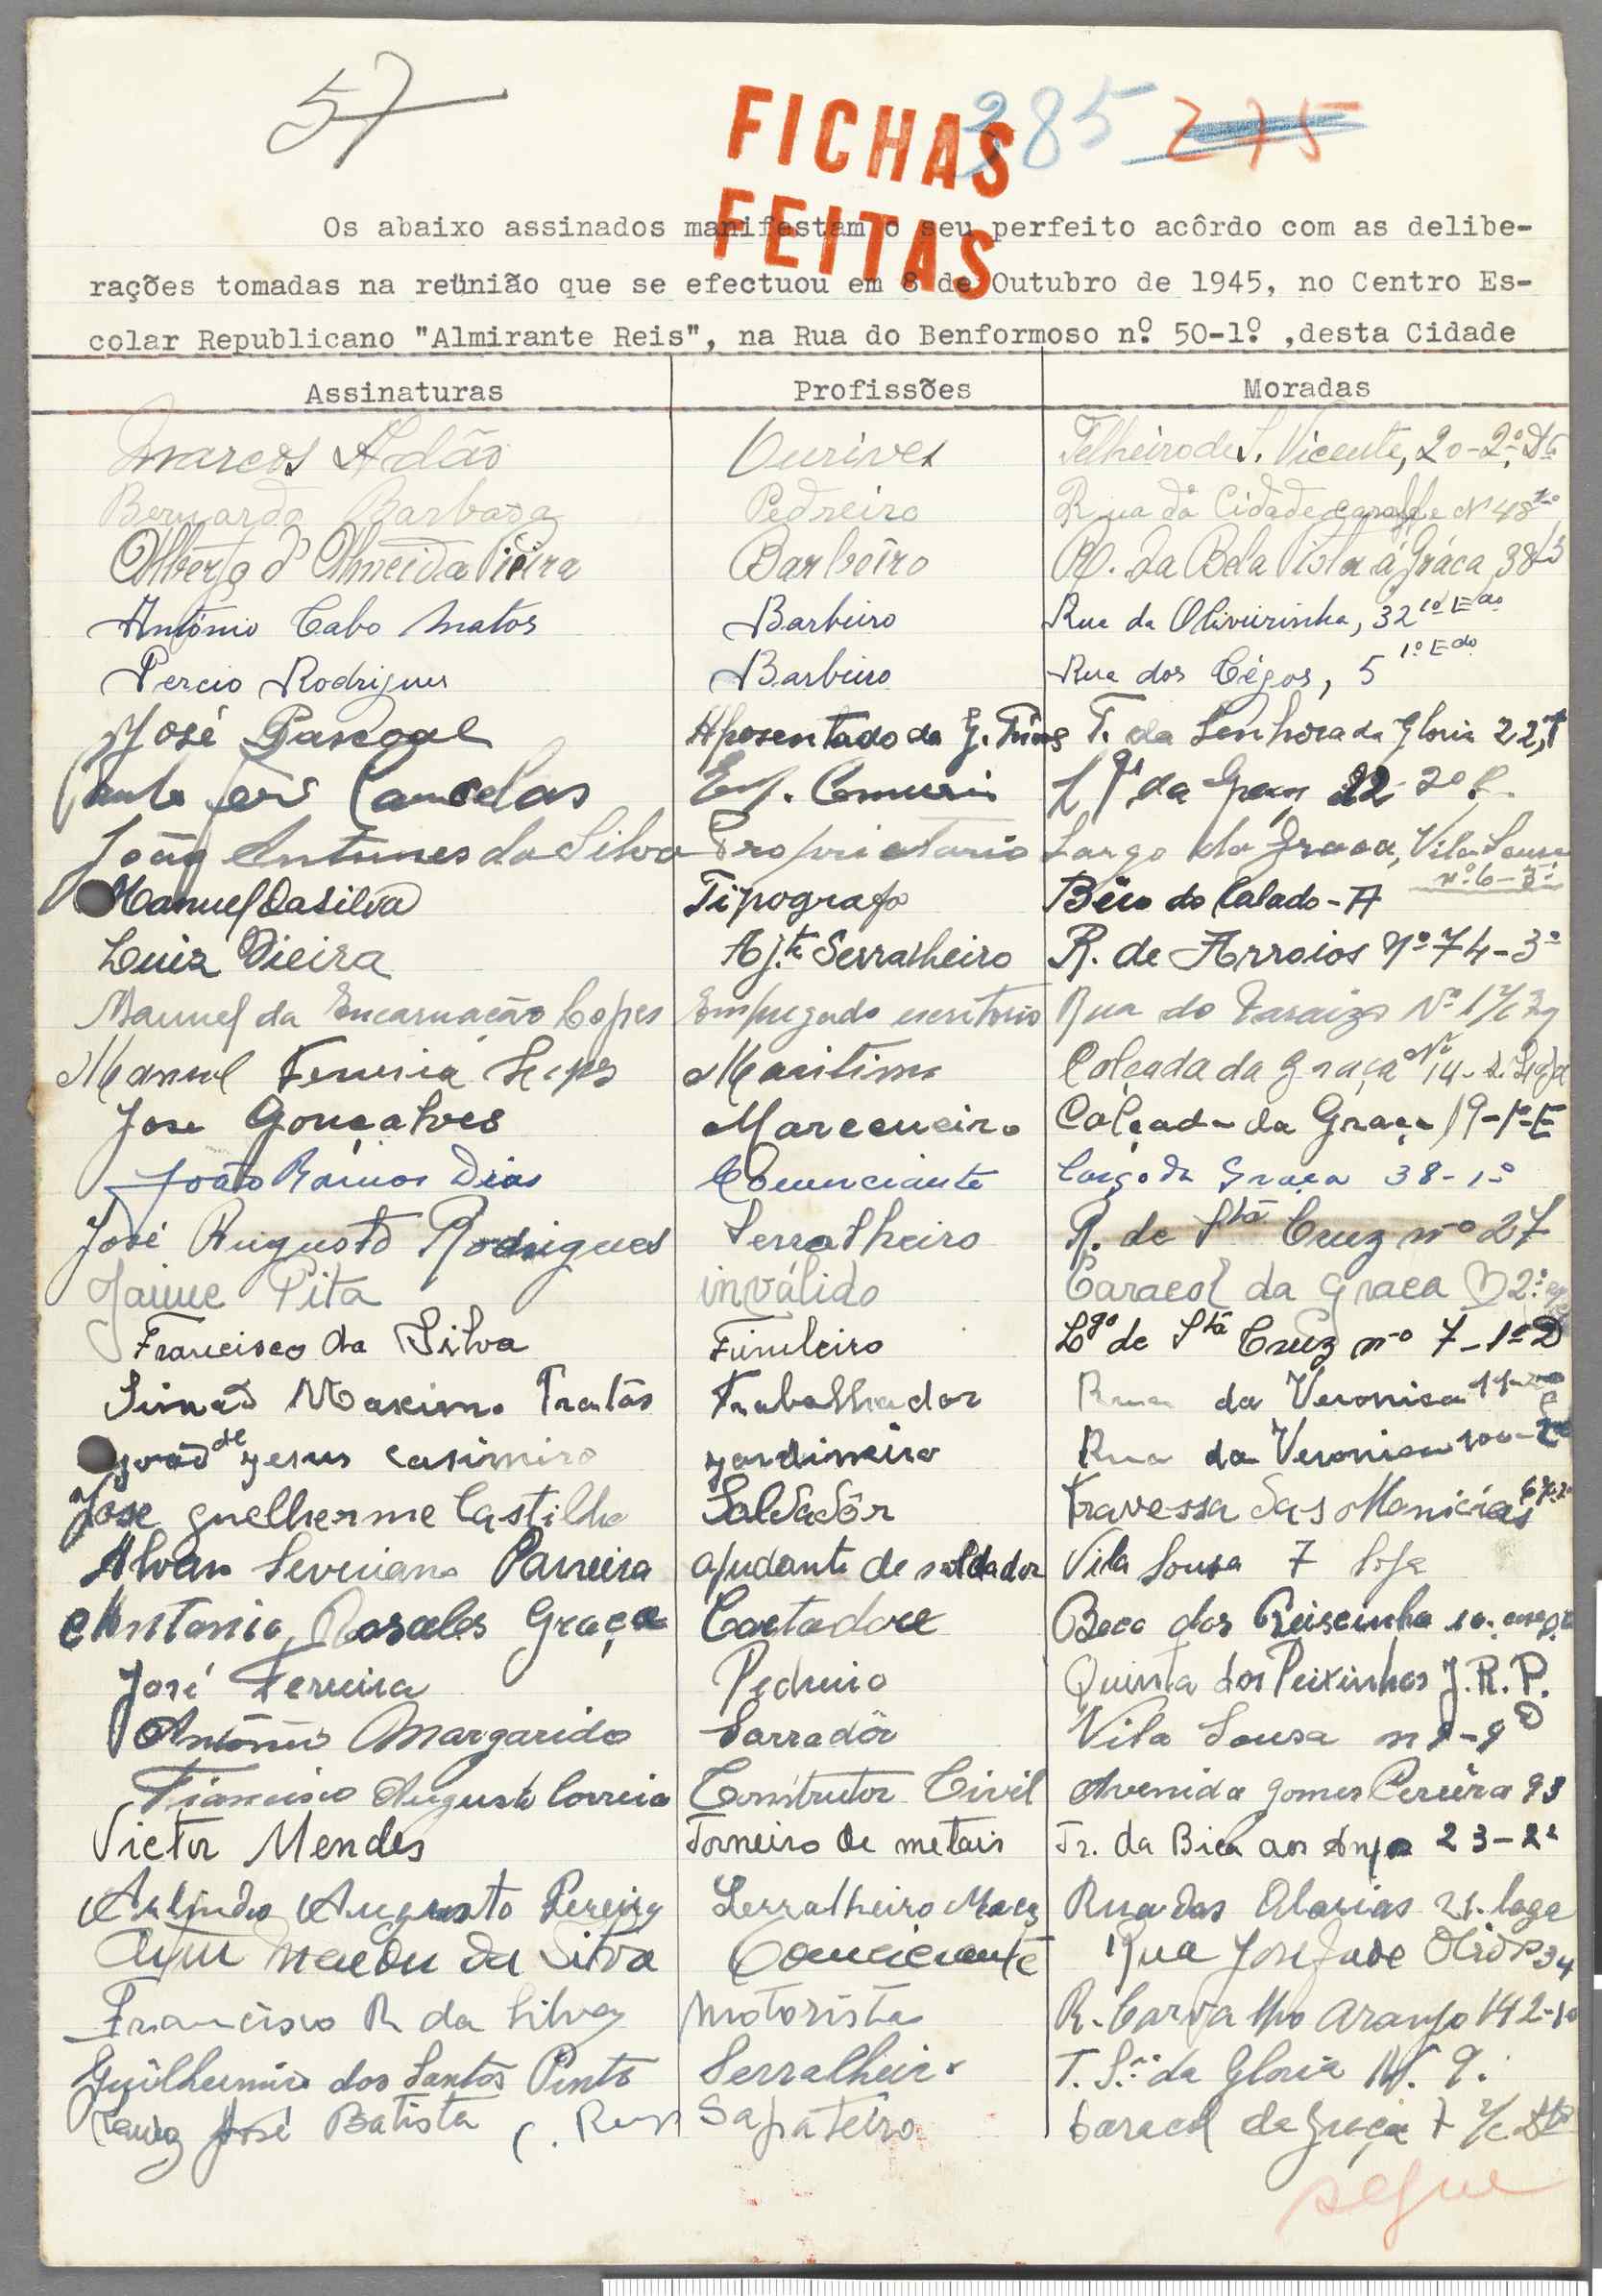 57
385 275
FICHAS
FEITAS
Os abaixo assinados manifestam o seu perfeito acôrdo com as delibe-
rações tomadas na reünião que se efectuou em 8 de Outubro de 1945, no Centro Es-
colar Republicano "Almirante Reis", na Rua do Benformoso nº 50-1º ,desta Cidade
Assinaturas Profissões Moradas
Marcos Adão Ourives Telheiro de S. Vicente, 20-2º Dtº
Bernardo Barbosa Pedreiro Rua da Cidade Nº 48
Alberto d'Almeida Vieira Barbeiro da Bela Vista á Gráca 38
António Cabo Matos Barbeiro Rua da Oliveirinha, 32 1º Edo
Percio Rodrigues Barbeiro Rua dos Cégos, 5 1º Edo
José Pascoal Aposentado da G. T. da Senhora da Gloria 22,
Cancelas Emp. 22 2º
João Antunes da Silva Proprietario Largo da Graça, Vila Sousa
nº 6-3º
Manuel da Silva Tipografo Bêco do Calado-A
Luiz Vieira Ajte Serralheiro R. de Arroios Nº 74-3º
Manuel da Encarnação Lopes Empregado escritorio Rua do Paraizo Nº 1
Manuel Ferreira Maritimo Calçada da Graça Nº 14-
Jose Gonçalves Marceneiro Calçada da Graça 19-1º-E
João Ramos Dias Comerciante Largo da Graça 38-1º
José Augusto Rodrigues Serralheiro R. de Stã Cruz nº 27
Jaime Pita inválido Caracol da Graça 2º
Francisco da Silva Funileiro Lgo de Stã Cruz nº 7-1º D
Simão Maximo Tratás Trabalhador Rua da Veronica
João de Jesus Casimiro Jardineiro Rua da Veronica 100-
Jose Guelherme Castilho Soldadôr Travessa das Monicias
Alvaro Severiano Parreira ajudante de soldador Vila Sousa 7 Loja
Antonio Rosales Graça Cortador Beco dos
José Ferreira Pedreiro Quinta dos Peixinhos J.R.P.
António Margarido Sarradôr Vila Sousa
Francisco Augusto Correia Construtor Civil Avenida Gomes Pereira 93
Victor Mendes Torneiro de metais Tr. da Bica aos Anjos 23-2º
Arlindo Augusto Pereira Serralheiro Rua das Olarias 21. loga
da Silva Comerciante Rua José 34
Francisco R da Silva Motorista R. Carvalho Araujo 142-1º
Guilhermino dos Santos Pinto Serralheiro T. Sra da Gloria Nº 9.
José Batista Sapateiro Caracol da Graça 7 r/c Dto
segue